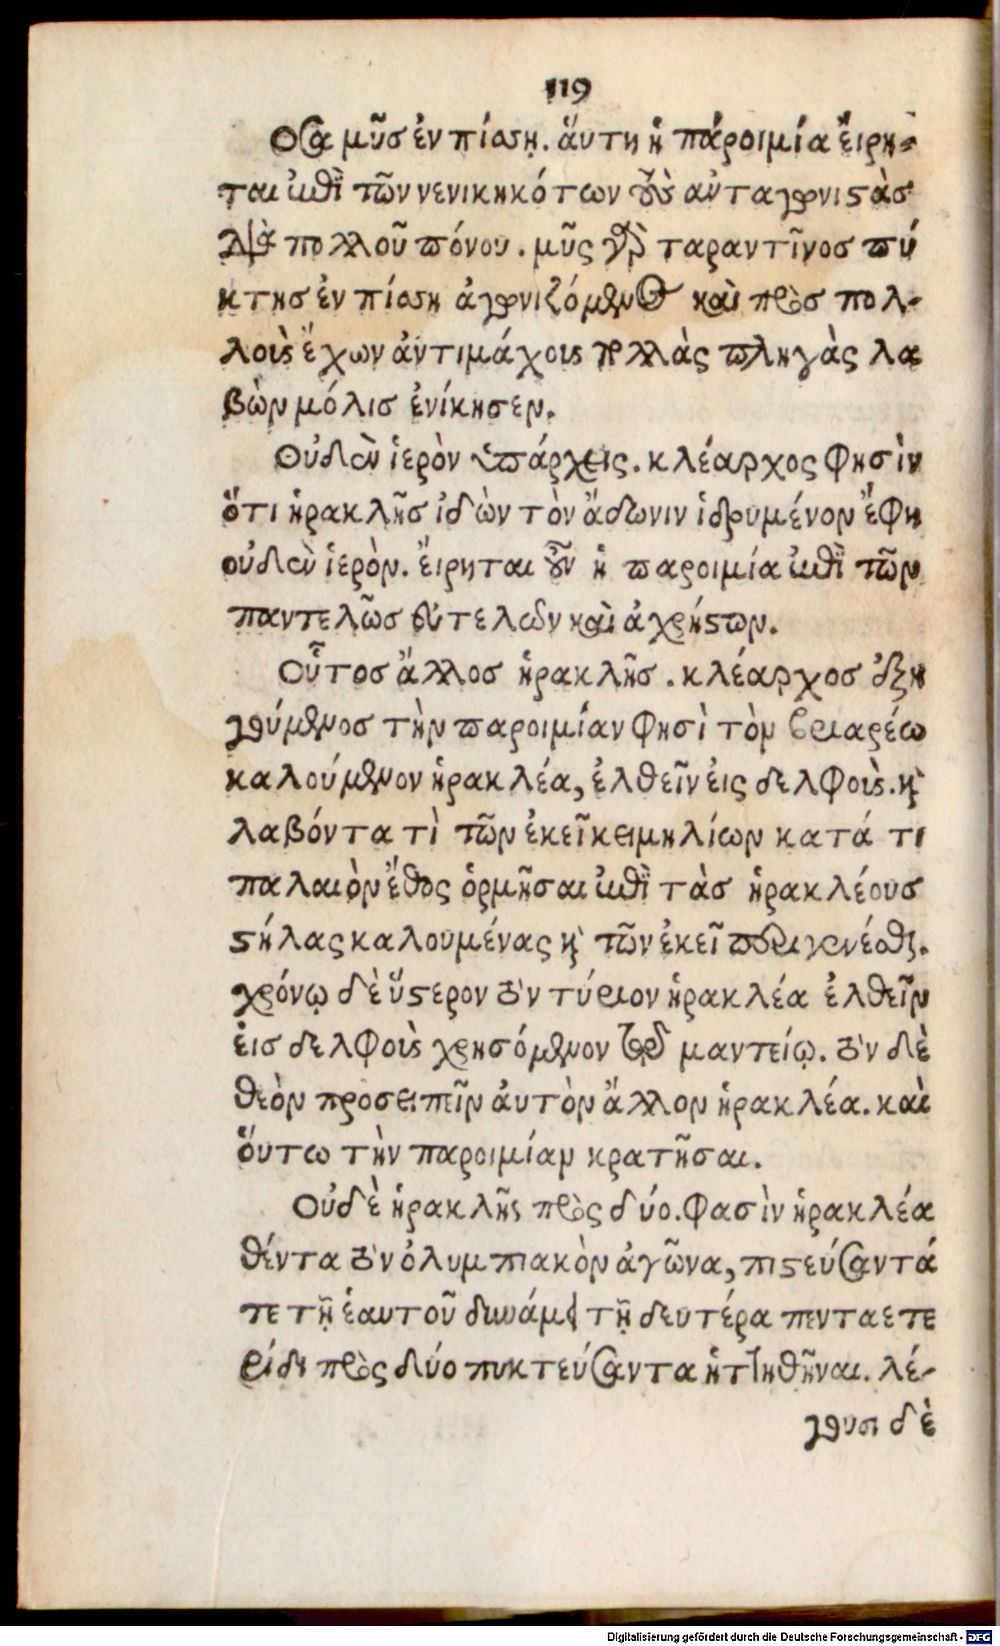 119
Οσα μῦσ ἐν πίσσῃ. ἅυτη ἡ πάροιμία ἔιρη-
ται ἐπὶ τῶν νενικηκότων τοὺς ἀνταγωνιστὰσ
μετὰ πολλοῦ πόνου. μῦς γὰρ ταραντῖνοσ πύ
κτησ ἐν πίσσῃ ἀγωνιζόμενος καὶ πρὸσ πολ-
λοὺς ἔχων ἀντιμάχους πολλὰς πληγὰς λα
βὼν μόλισ ἐνίκησεν.
Οὐδὲν ἱερὸν ὑπάρχεις. κλέαρχος φησὶν
ὅτι ἡρακλῆσ ἰδὼν τὸν ἄδωνιν ἱδρυμένον ἔφη
οὐδὲν ἱερὸν. ἔιρηται οὖν ἡ παροιμία ἐπὶ τῶν
παντελῶσ εὐτελῶν καὶ ἀχρήστων.
Οὗτοσ ἄλλοσ ἡρακλῆσ. κλέαρχοσ ἐξη
γούμενοσ τὴν παροιμίαν φησὶ τὸν βριαρέω
καλούμενον ἡρακλέα, ἐλθεῖν ἐις δελφοὺς. καὶ
λαβόντα τὶ τῶν ἐκεῖ κειμηλίων κατά τι
παλαιὸν ἔθος ὁρμῆσαι ἐπὶ τὰσ ἡρακλέουσ
στήλας καλουμένας καὶ τῶν ἐκεῖ περιγενέσθαι.
χρόνῳ δὲ ὕστερον τὸν τύριον ἡρακλέα ἐλθεῖν
ἐισ δελφοὺς χρησόμενον τῷ μαντείῳ. τὸν δὲ
θεὸν προσειπεῖν ἀυτὸν ἄλλον ἡρακλέα. καὶ
ὅυτω τὴν παροιμίαν κρατῆσαι.
Οὐδὲ ἡρακλῆς πρὸς δύο. φασὶν ἡρακλέα
θέντα τὸν ὀλυμπιακὸν ἀγῶνα, πιστεύσαντά
τε τῇ ἑαυτοῦ δυνάμει τῇ δευτέρα πενταετε
ρίδι πρὸς δύο πυκτεύσαντα ἡττηθῆναι. λέ-
γουσι δὲ
Digitalisierung gefördert durch die Deutsche Forschungsgemeinschaft - DFG